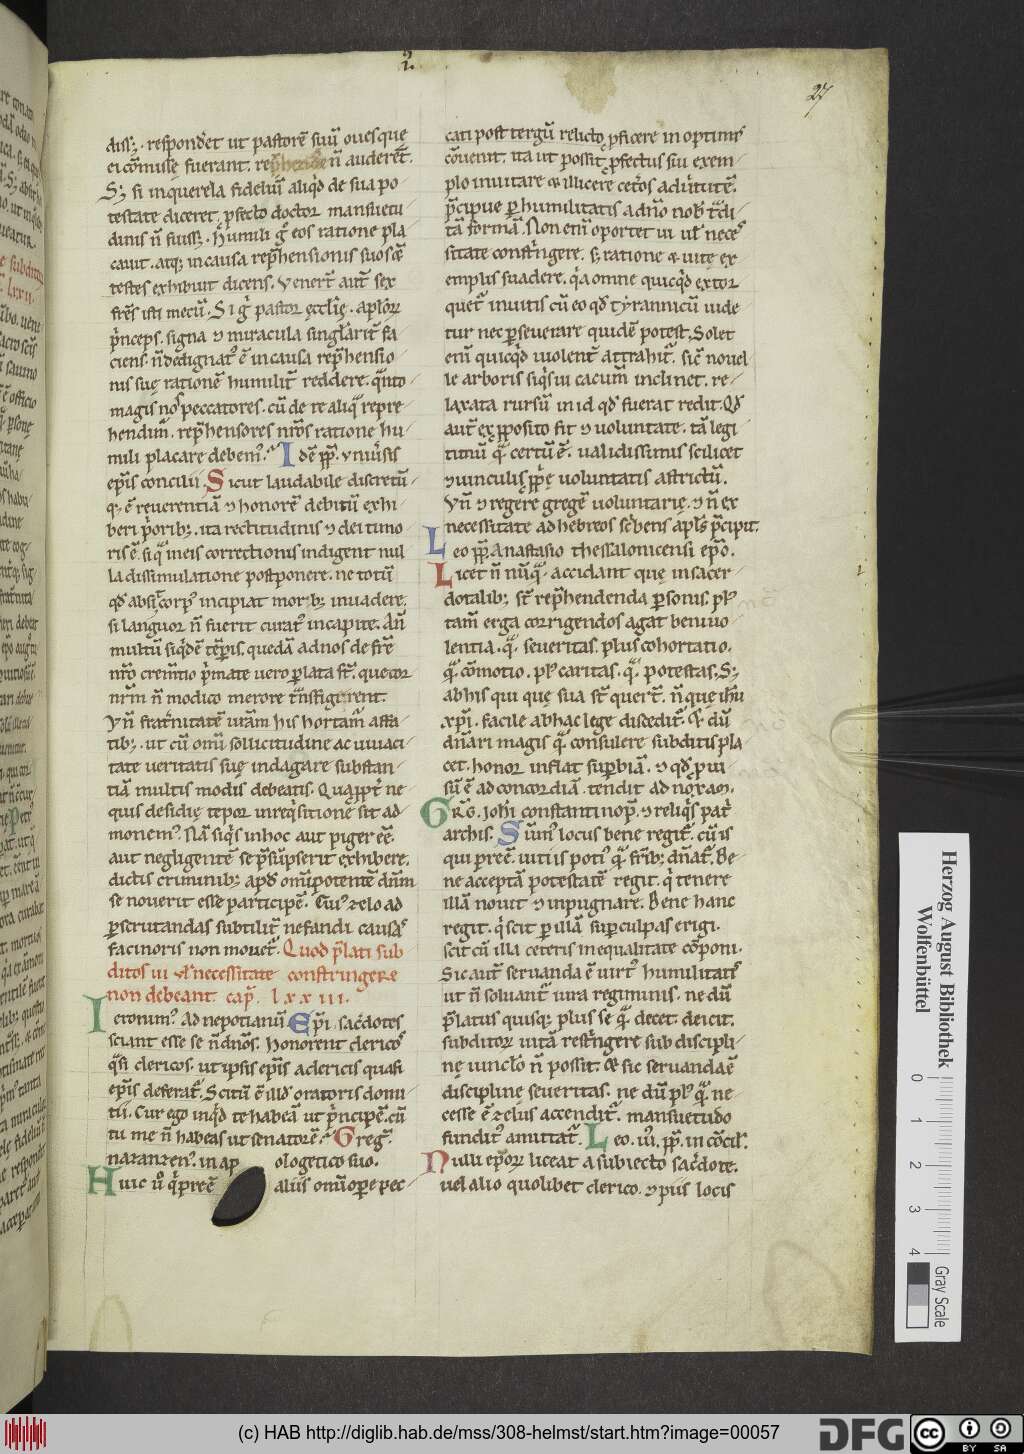 27
diss&, respond&et ut pastorē suū oues que
ei cōmisse fuerant. rep̄hende n̄ auderēt.
S; si in querela fidelium aliq̇d de sua po
testate diceret, p̱fecto doctor mansuetu
dinis n̄ fuiss&. Humili g̊ eos ratione pla
cauit. atq; in causa rep̄hensionis suos c̄
testes exhibuit dicens. Venert̄ aut̄ sex
frēs isti mecū. Si g̊ pastor ęcclīę. apl̄oꝝ
p̄nceps. signa ⁊ miracula singl̄arit̄ fa
ciens. n̄ dedignatᷣ ē in causa rep̄hensio
nis suę rationē humilit̄ reddere. q̄nto
magis nos peccatores. cū de re aliq̄ repre
hendimᷣ. rep̄hensores nr̄os ratione hu
mili placare debemᷣ. Idē pp̄. vniūsis
ep̄is concilii. Sicut laudabile discretū
q; ē reuerentiā ⁊ honorē debitū exhi
beri p̄orib;. ita rectitudinis ⁊ dei timo
ris ē. si q̄ in eis correctionis indigent nul
la dissimulatione postponere. ne totū
qd̄ absit corpᷣ incipiat morbꝰ inuadere.
si languor n̄ fuerit curatᷣ in capite. An̄
multū siq̇dē tēp̱is. quedā ad nos de frē
nr̄o
nr̄m n̄ modico merore
Vn̄ frat̄nitatē urām his hortamᷣ affa
tib;. ut cū omī sollicitudine ac uiuaci
tate ueritatis suę indagare substan
tiā multis modis debeatis. Quap̱pt̄ ne
quis desidię tepor inreq̇sitione sit ad
monemᷣ. Nā siq̇s in hoc aut piger ēē.
aut negligentē se p̄sūpserit exhibere.
dictis criminib; apd̄ omīpotentē dn̄m
se nouerit esse participē. Cuiᷣ zelo ad
p̱scrutandas subtilit̄ nefandi causas
facinoris non mouet̄. Quod p̄lati sub
ditos ui ul̄ necessitate constringere
non debeant. cap̄. lxxiii.
Ieronimᷣ. Ad nepotianū. Ep̄i. sac̄dotes
sciant esse se n̄ dn̄os. Honorent clericos
q̄si clericos. ut ipsis ep̄is a clericis quasi
ep̄is deferatᷣ. Scitū ē illd̄ oratoris domi
tii. Cur ego inq̇d te habeā ut p̄ncipē. cū
tu me n̄ habeas ut senatorē. Greg.
nazanzenᷣ. in ap ologetico suo.
Huic ů q̇ preē aliis omī ope pec
cati post tergū relicto. p̱ficere in optimis
cōuenit. ita ut possit p̱fectus sui exem
plo inuitare & illicere cet̄os ad ůtutē.
p̄cipue p̱ humilitatis a dn̄o nob̄ tdi
tā formā. Non enī oportet ui ul̄ neces
sitate constringere. s; ratione & uitę ex
emplis suadere. q̇a omne quicq̇d extor
quetᷣ inuitis cū eo qd̄ tyrannicū uide
tur nec p̱seuerare quidē potest. Solet
enī quicq̇d uiolent̄ attrahitᷣ. sic̄ nouel
le arboris siq̇s ui cacumᷣ inclinet. re
laxata rursū in id qd̄ fuerat redit. Qd̄
aut̄ ex p̱posito fit ⁊ uoluntate. tā legi
timū q̄ certū ē. ualidissimis scilicet
⁊ uinculis pp̱ę uoluntatis astrictū.
Vn̄ ⁊ regere gregē uoluntarię. ⁊ n̄ ex
necessitate ad hebreos sc̄bens apl̄s p̄cipit.
Leo pp̄. Anastasio thessalonicensi ep̄o.
Licet n̄ nūq̄ accidant que in sacer
dotalib; st̄ rep̄hendenda p̱sonis. plᷣ
tam̄ erga corrigendos agat beniuo
lentia. q̄ seueritas. plus cohortatio.
q̄ cōmotio. plᷣ caritas. q̄ potestas. S;
ab his qui que sua st̄ quert̄. n̄ que ih̄u
xp̄i. facile ab hac lege disceditᷣ. & dū
dn̄ari magis q̄ consulere subditis pla
cet. honor inflat sup̱biā. ⁊ qd̄ p̱ui
sū ē ad concordiā. tendit ad noxam.
Grḡ. Joh̄i constantinop̄. ⁊ reliq̇s patr̄
archis. Sūmᷣ locus bene regitᷣ. cū is
qui preē. uitiis potiᷣ q̄ frīb; dn̄at̄. Be
ne acceptā potestatē regit. q̇ tenere
illā nouit ⁊ inpugnare. Bene hanc
regit. q̇ scit p̱ illā sup̱ culpas erigi.
scit cū illa ceteris in equalitate cōponi.
Sic aut̄ seruanda ē uirtᷣ humilitatis
ut n̄ soluantᷣ iura regiminis. ne dū
p̄latus quisq; plus se q̄ decet deicit.
subditoꝝ uitā rest̄ngere sub discipli
nę uinclo n̄ possit. & sic seruanda ē
discipline seueritas. ne dū plᷣ q̄ ne
cesse ē zelus accenditᷣ. mansuetudo
funditᷣ amittatᷣ. Leo. uii. pp̄. in cōcil.
Nulli ep̄oꝝ liceat a subiecto sac̄dote.
uel alio quolibet clerico. ⁊ piis locis
Herzog August Bibliothek
Wolfenbüttel
0 1 2 3 4
Gray Scale
(c) HAB http://diglib.hab.de/mss/308-helmst/start.htm?image=00057
DFG
cc
BY SA